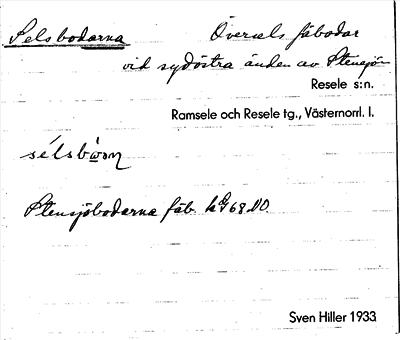 Selsbodarna Översels fäbodar
vid sydöstra änden av Stensjön
Resele s:n.
Ramsele och Resele tg., Västernorrl. l.
Stensjöbodarna fäb. 68 NO.
Sven Hiller 1933